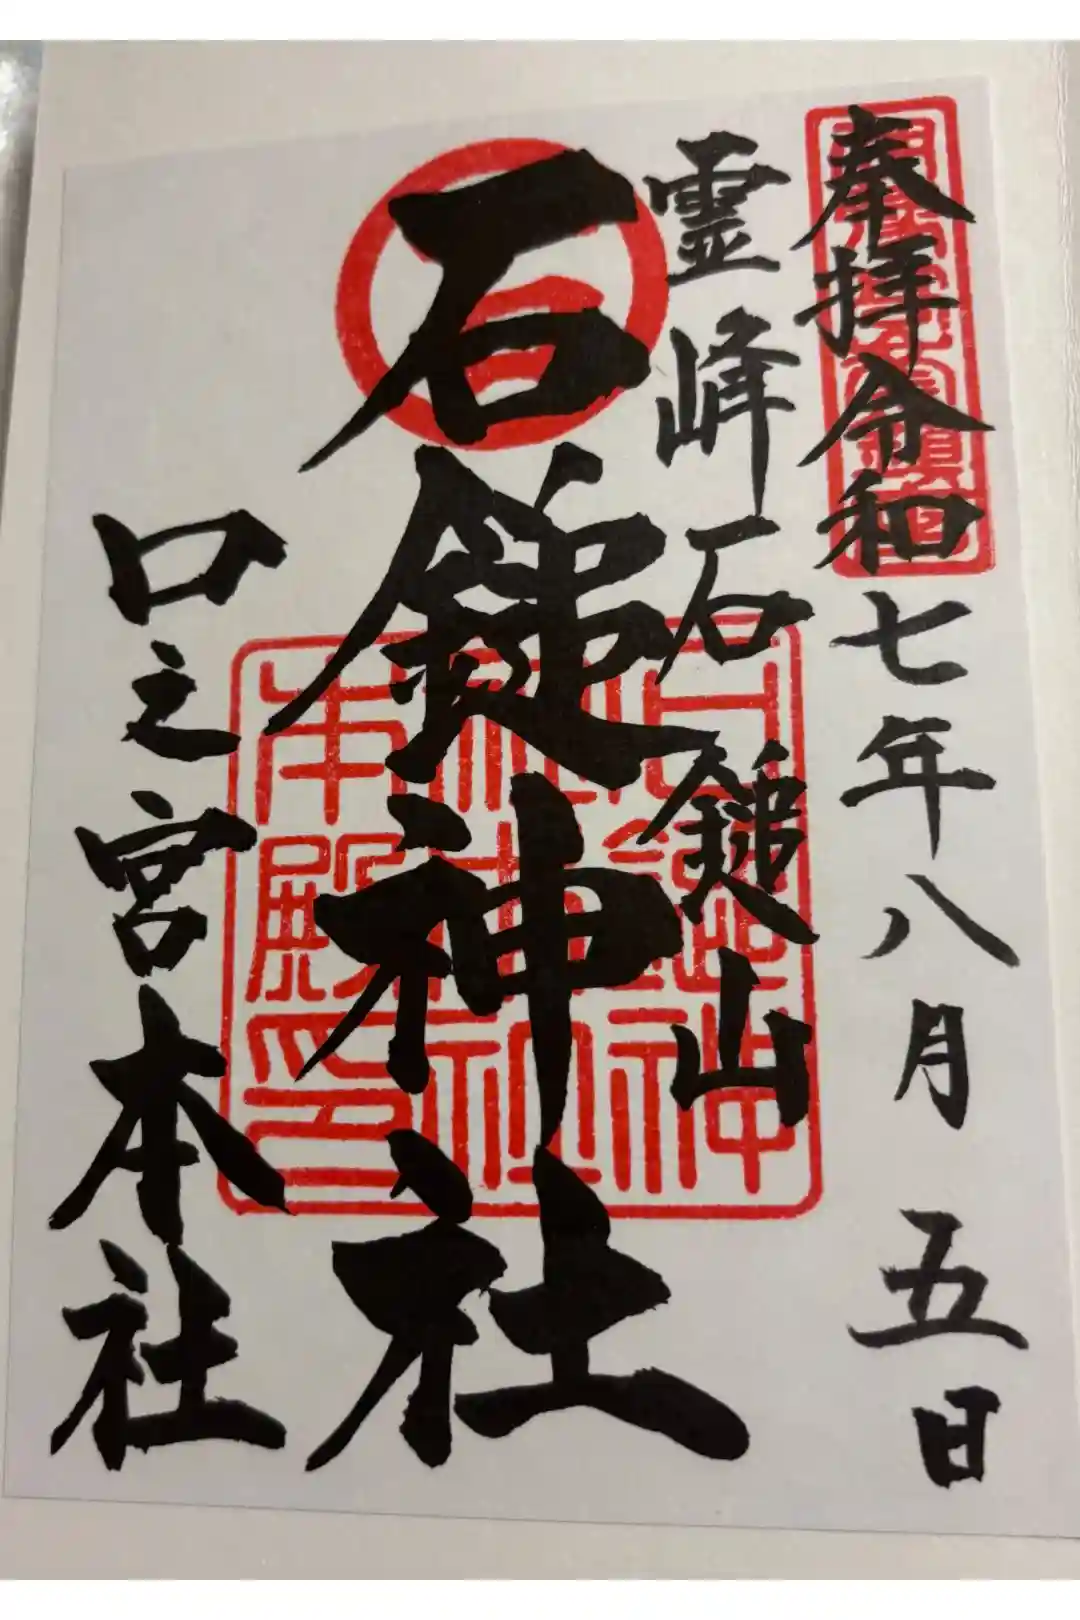 奉拝令和七年八月五日
霊峰石鎚山
石鎚神社
口之宮本社
石
石鎚神社本社本殿印